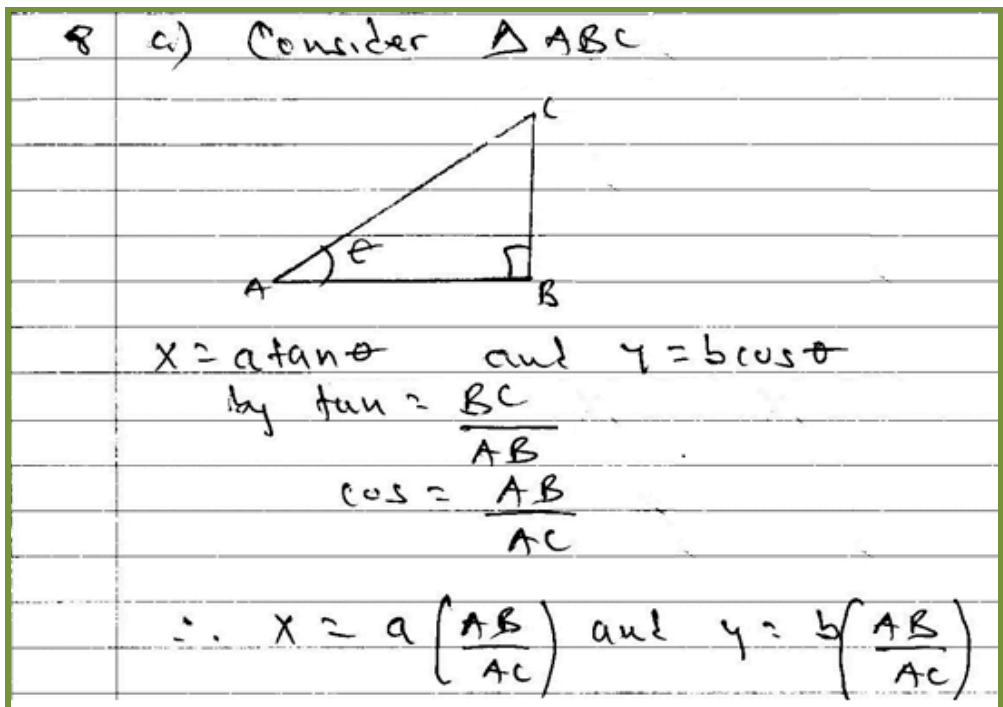 8 a) Consider △ ABC
C
θ
A
B
x = a tan θ and y = b cos θ
by tan = BC/AB
cos = AB/AC
∴ x = a (AB/AC) and y = b (AB/AC)